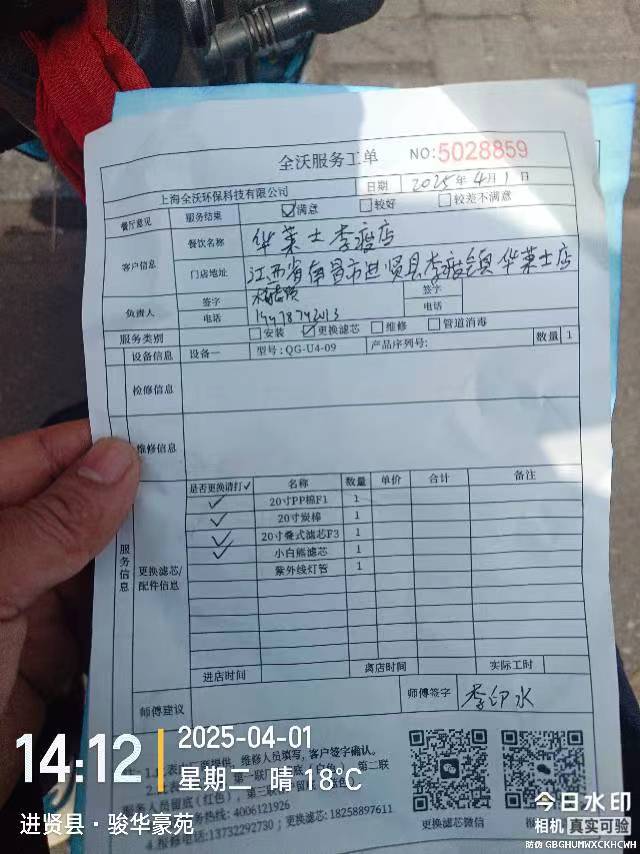 全沃服务工单 NO:5028859
上海全沃环保科技有限公司 日期 2025年4月1日
餐厅意见 服务结果 ☑满意 □较好 □较差不满意
客户信息 餐饮名称 华莱士李渡店
门店地址 江西省南昌市进贤县李渡镇华莱士店
负责人 签字 签字
电话 电话
服务类别 □安装 ☑更换滤芯 □维修 □管道消毒
设备信息 设备一 型号: QG-U4-09 产品序列号: 数量 1
检修信息
维修信息
服务信息
更换滤芯/配件信息
是否更换请打✓ 名称 数量 单价 合计 备注
✓ 20寸PP棉F1 1
✓ 20寸炭棒 1
✓ 20寸叠式滤芯F3 1
✓ 小白熊滤芯 1
紫外线灯管 1
进店时间 离店时间 实际工时
师傅建议 师傅签字 李印水
维修人员填写, 客户签字确认。
第二联
服务热线: 4006121926
4.报修电话:13732292730 ; 更换滤芯: 18258897611
更换滤芯微信
14:12
2025-04-01
星期二 晴 18°C
进贤县·骏华豪苑
今日水印
相机 真实可验
防伪 GBGHUMWXCKHCWH